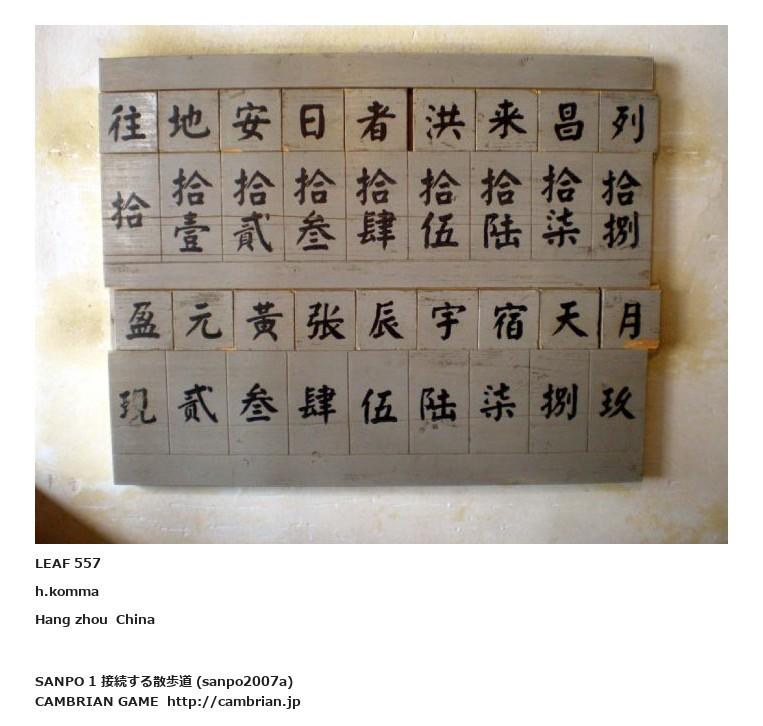 往 地 安 日 者 洪 来 昌 列
拾 拾壹 拾貳 拾叁 拾肆 拾伍 拾陆 拾柒 拾捌
盈 元 黃 张 辰 宇 宿 天 月
现 贰 叁 肆 伍 陆 柒 捌 玖
LEAF 557
h.komma
Hang zhou China
SANPO 1 接続する散歩道 (sanpo2007a)
CAMBRIAN GAME http://cambrian.jp